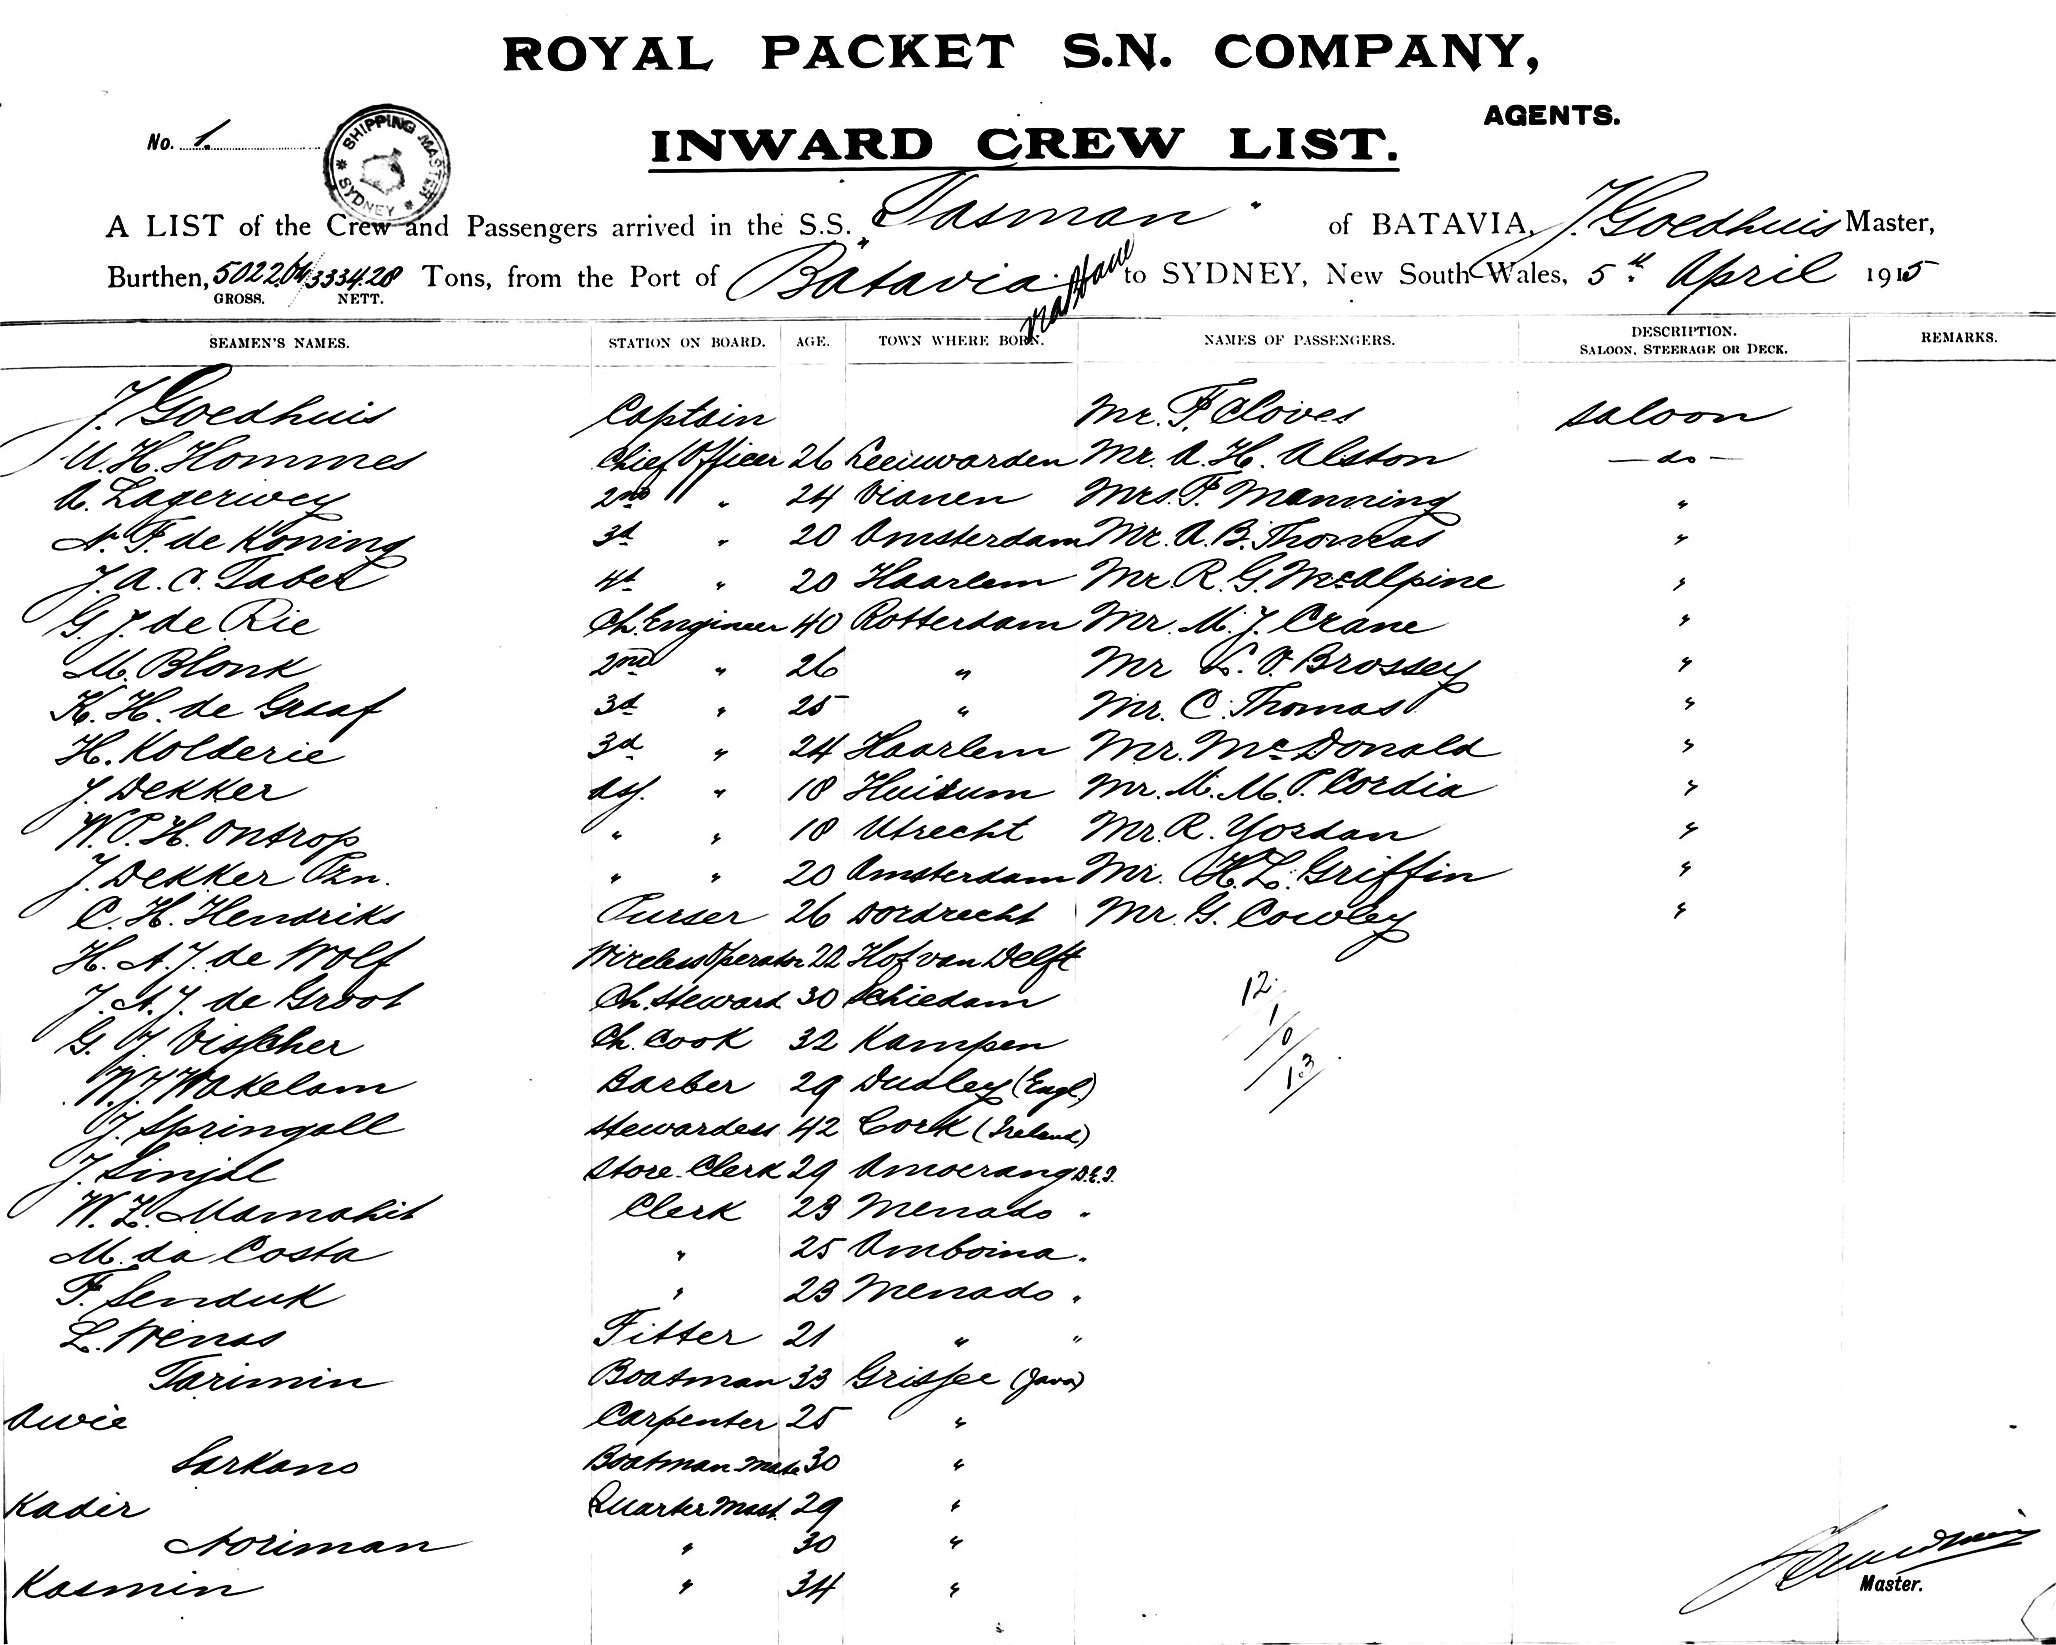 ROYAL PACKET S.N. COMPANY,
AGENTS.
No. 1.
SHIPPING MASTER SYDNEY
INWARD CREW LIST.
A LIST of the Crew and Passengers arrived in the S.S. "Tasman" of BATAVIA, J. Goedhuis Master,
Burthen, 5022.04/3334.28 Tons, from the Port of Batavia via to SYDNEY, New South Wales, 5th April 1915
GROSS. NETT.
SEAMEN'S NAMES. STATION ON BOARD. AGE. TOWN WHERE BORN. NAMES OF PASSENGERS. DESCRIPTION. SALOON, STEERAGE OR DECK. REMARKS.
J. Goedhuis Captain Mr. F. Cloves Saloon
U. H. Hommes Chief Officer 26 Leeuwarden Mr. A. H. Alston — do —
A. Lagerwey 2nd " 24 Vianen Mrs. F. Manning "
N. F. de Koning 3d " 20 Amsterdam Mr. A. B. Thomas "
J. A. C. Tabet 4th " 20 Haarlem Mr. R. G. McAlpine "
G. J. de Rie Ch. Engineer 40 Rotterdam Mr. M. J. Crane "
M. Blonk 2nd " 26 " Mr L. V. Brossey "
K. H. de Graaf 3d " 25 " Mr. C. Thomas "
H. Kolderie 3d " 24 Haarlem Mr. McDonald "
J. Dekker asj. " 18 Huisum Mr. M. M. P. Cordia "
W. P. H. Ontrop " " 18 Utrecht Mr. R. Yordan "
J. Dekker Pzn. " " 20 Amsterdam Mr. H. L. Griffin "
C. H. Hendriks Purser 26 Dordrecht Mr. G. Cowley "
H. A. J. de Wolf Wireless Operator 22 Hof van Delft
J. A. J. de Groot Ch. Steward 30 Schiedam 12.
G. J. Visscher Ch. Cook 32 Kampen 1/0
W. J. Wakelam Barber 29 Dudley (Engl.) 13
J. Springall Stewardess 42 Cork (Ireland)
J. Sinjal Store-Clerk 29 Amoerang D.E.I.
W. Z. Mamahit Clerk 23 Menado "
M. da Costa " 25 Amboina "
F. Senduk " 23 Menado "
L. Wenas Fitter 21 " "
Tarimin Boatman 33 Grissee (Java)
Awie Carpenter 25 "
Sarkans Boatman Mate 30 "
Kadir Quarter Mast. 29 "
Noriman " 30 "
Kasmin " 34 "
Master.